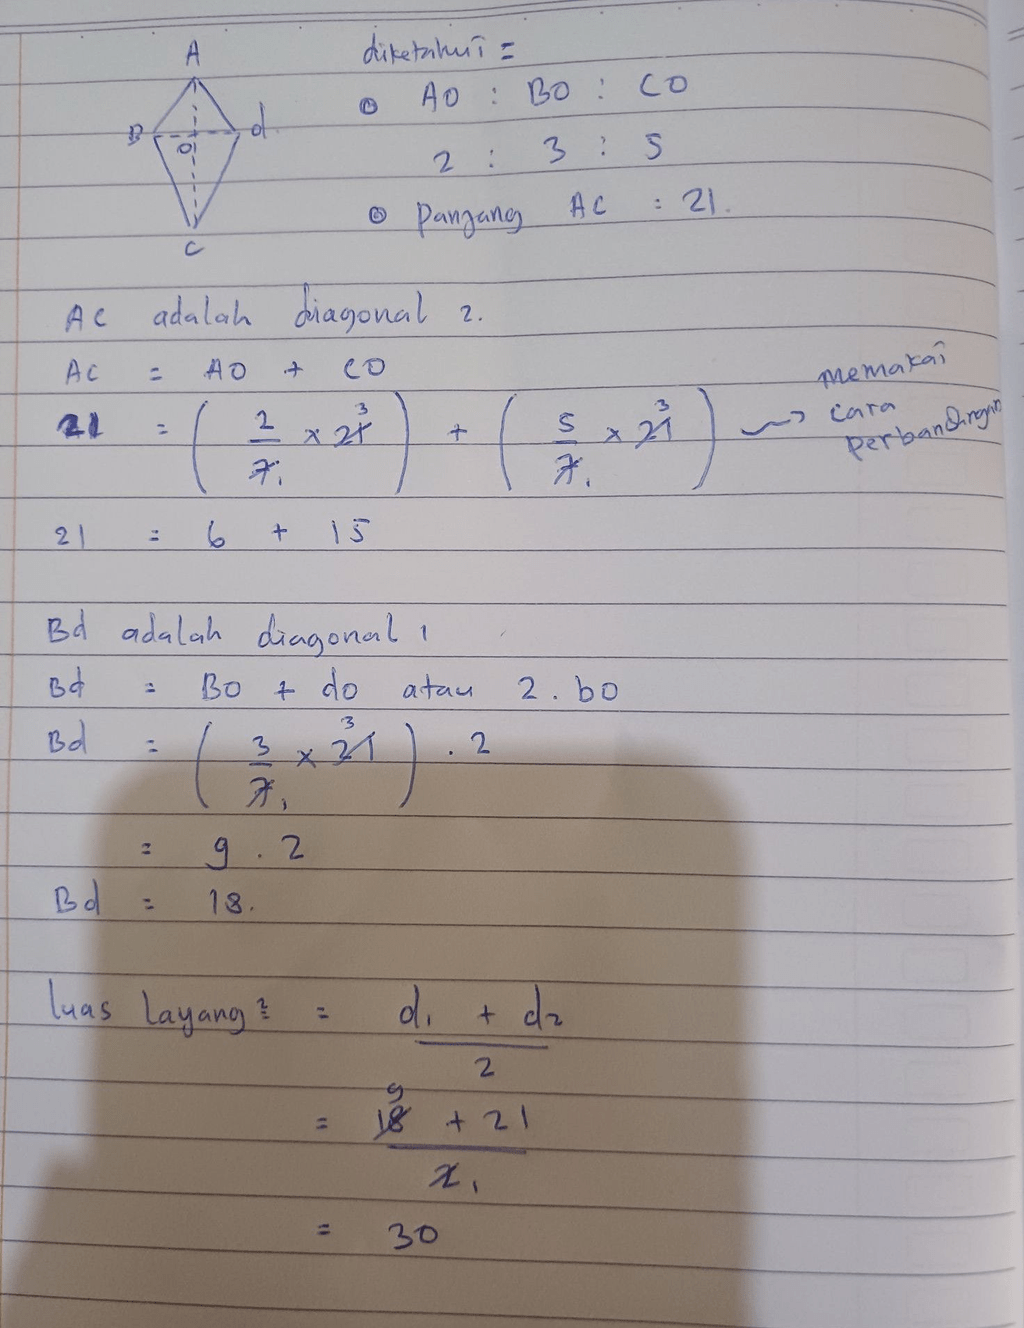 A
B d
O
C
diketahui =
AO : BO : CO
2 : 3 : 5
Panjang AC : 21.
AC adalah diagonal 2.
AC = AO + CO
21 = ( 2/7 1 × 21 3 ) + ( 5/7 1 × 21 3 ) ~> memakai cara perbandingan
21 = 6 + 15
Bd adalah diagonal 1
Bd = BO + do atau 2 . bo
Bd = ( 3/7 1 × 21 3 ) . 2
= 9 . 2
Bd = 18.
luas layang² = d1 + d2
2
9
= 18 + 21
2 1
= 30